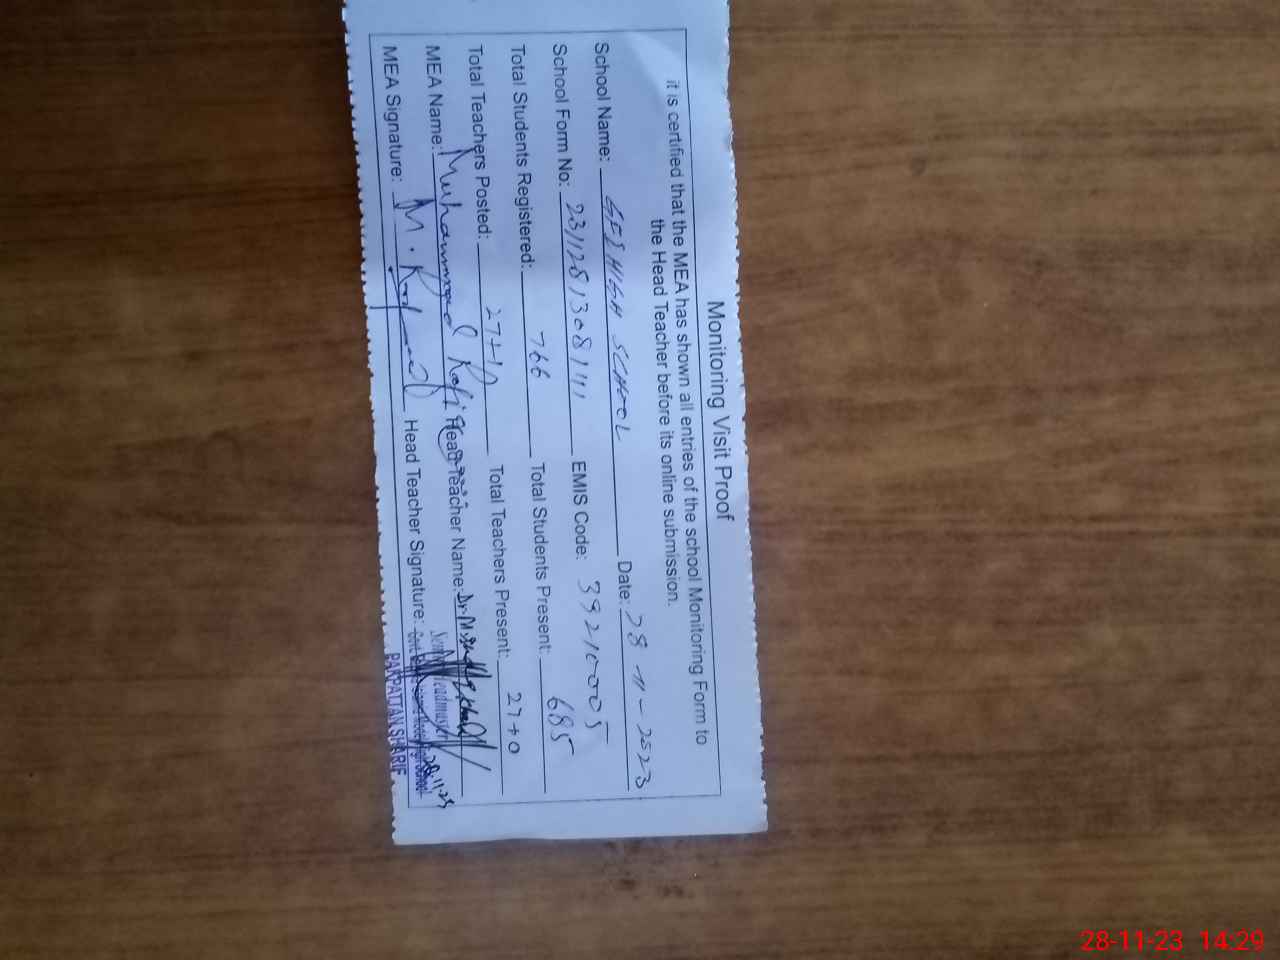 Monitoring Visit Proof
it is certified that the MEA has shown all entries of the school Monitoring Form to
the Head Teacher before its online submission.
School Name: HIGH SCHOOL Date: 28-11-2023
School Form No: EMIS Code: 39210005
Total Students Registered: 766 Total Students Present: 685
Total Teachers Posted: Total Teachers Present: 27+0
MEA Name: Muhammad Rafi Head Teacher Name: Dr. M.
MEA Signature: Head Teacher Signature:
Headmaster
PAKPATTAN SHARIF
28-11-23 14:29